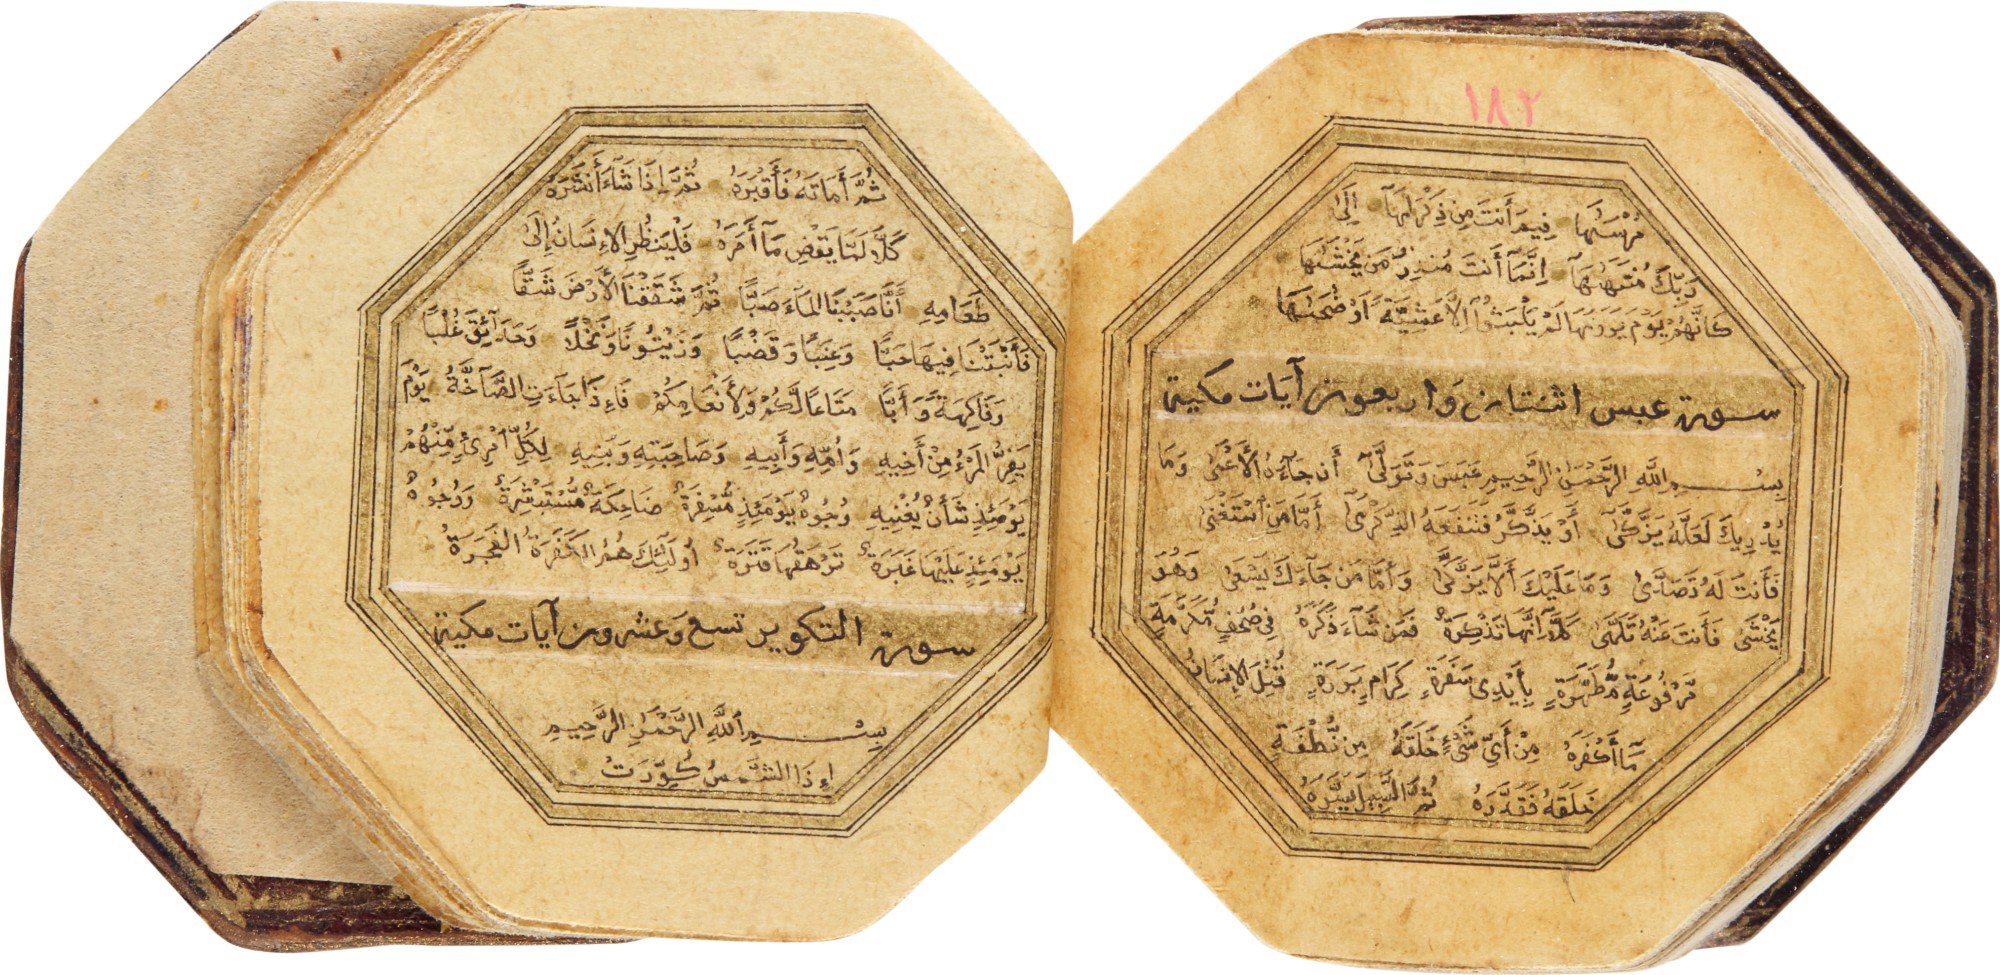 ١٨٢
مُرْسَىٰهَا فِيمَ أَنتَ مِن ذِكْرَىٰهَآ إِلَىٰ
رَبِّكَ مُنتَهَىٰهَآ إِنَّمَآ أَنتَ مُنذِرُ مَن يَخْشَىٰهَا
كَأَنَّهُمْ يَوْمَ يَرَوْنَهَا لَمْ يَلْبَثُوٓا۟ إِلَّا عَشِيَّةً أَوْ ضُحَىٰهَا
سورة عبس اثنتان واربعون آيات مكية
بِسْمِ اللَّهِ الرَّحْمَٰنِ الرَّحِيمِ عَبَسَ وَتَوَلَّىٰٓ أَن جَآءَهُ الْأَعْمَىٰ وَمَا
يُدْرِيكَ لَعَلَّهُ يَزَّكَّىٰٓ أَوْ يَذَّكَّرُ فَتَنفَعَهُ الذِّكْرَىٰٓ أَمَّا مَنِ اسْتَغْنَىٰ
فَأَنتَ لَهُ تَصَدَّىٰ وَمَا عَلَيْكَ أَلَّا يَزَّكَّىٰ وَأَمَّا مَن جَآءَكَ يَسْعَىٰ وَهُوَ
يَخْشَىٰ فَأَنتَ عَنْهُ تَلَهَّىٰ كَلَّآ إِنَّهَا تَذْكِرَةٌ فَمَن شَآءَ ذَكَرَهُ فِى صُحُفٍ مُّكَرَّمَةٍ
مَّرْفُوعَةٍ مُّطَهَّرَةٍ بِأَيْدِى سَفَرَةٍ كِرَامٍ بَرَرَةٍ قُتِلَ الْإِنسَانُ
مَآ أَكْفَرَهُ مِنْ أَىِّ شَىْءٍ خَلَقَهُ مِن نُّطْفَةٍ
خَلَقَهُ فَقَدَّرَهُ ثُمَّ السَّبِيلَ يَسَّرَهُ
ثُمَّ أَمَاتَهُ فَأَقْبَرَهُ ثُمَّ إِذَا شَآءَ أَنشَرَهُ
كَلَّا لَمَّا يَقْضِ مَآ أَمَرَهُ فَلْيَنظُرِ الْإِنسَانُ إِلَىٰ
طَعَامِهِ أَنَّا صَبَبْنَا الْمَآءَ صَبًّا ثُمَّ شَقَقْنَا الْأَرْضَ شَقًّا
فَأَنبَتْنَا فِيهَا حَبًّا وَعِنَبًا وَقَضْبًا وَزَيْتُونًا وَنَخْلًا وَحَدَآئِقَ غُلْبًا
وَفَاكِهَةً وَأَبًّا مَتَاعًا لَّكُمْ وَلِأَنْعَامِكُمْ فَإِذَا جَآءَتِ الصَّآخَّةُ يَوْمَ
يَفِرُّ الْمَرْءُ مِنْ أَخِيهِ وَأُمِّهِ وَأَبِيهِ وَصَاحِبَتِهِ وَبَنِيهِ لِكُلِّ امْرِئٍ مِّنْهُمْ
يَوْمَئِذٍ شَأْنٌ يُغْنِيهِ وُجُوهٌ يَوْمَئِذٍ مُّسْفِرَةٌ ضَاحِكَةٌ مُّسْتَبْشِرَةٌ وَوُجُوهٌ
يَوْمَئِذٍ عَلَيْهَا غَبَرَةٌ تَرْهَقُهَا قَتَرَةٌ أُولَٰٓئِكَ هُمُ الْكَفَرَةُ الْفَجَرَةُ
سورة التكوير تسع وعشرون آيات مكية
بِسْمِ اللَّهِ الرَّحْمَٰنِ الرَّحِيمِ
إِذَا الشَّمْسُ كُوِّرَتْ